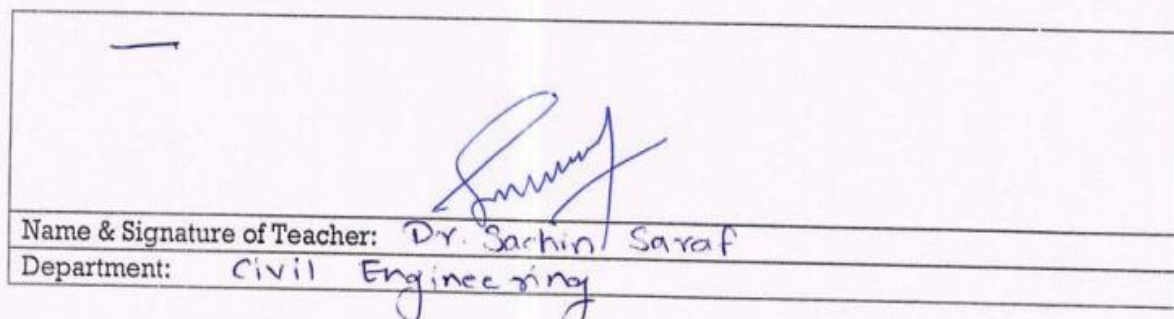 Name & Signature of Teacher: Dr. Sachin Saraf
Department: Civil Engineering